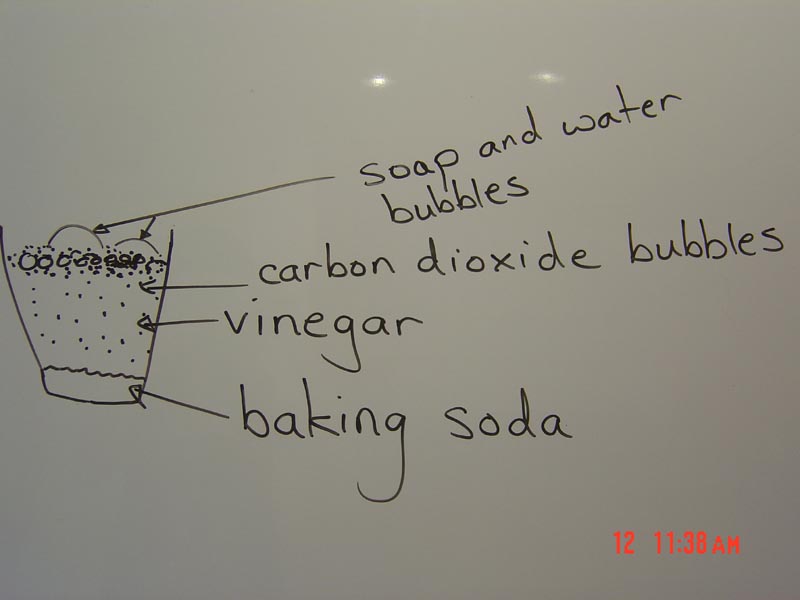 soap and water
bubbles
carbon dioxide bubbles
vinegar
baking soda
12 11:38 AM